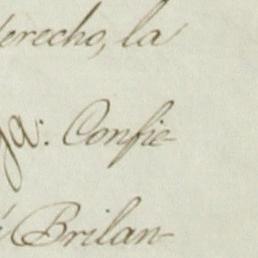 derecho, la
ga: Confie-
é Brilan-